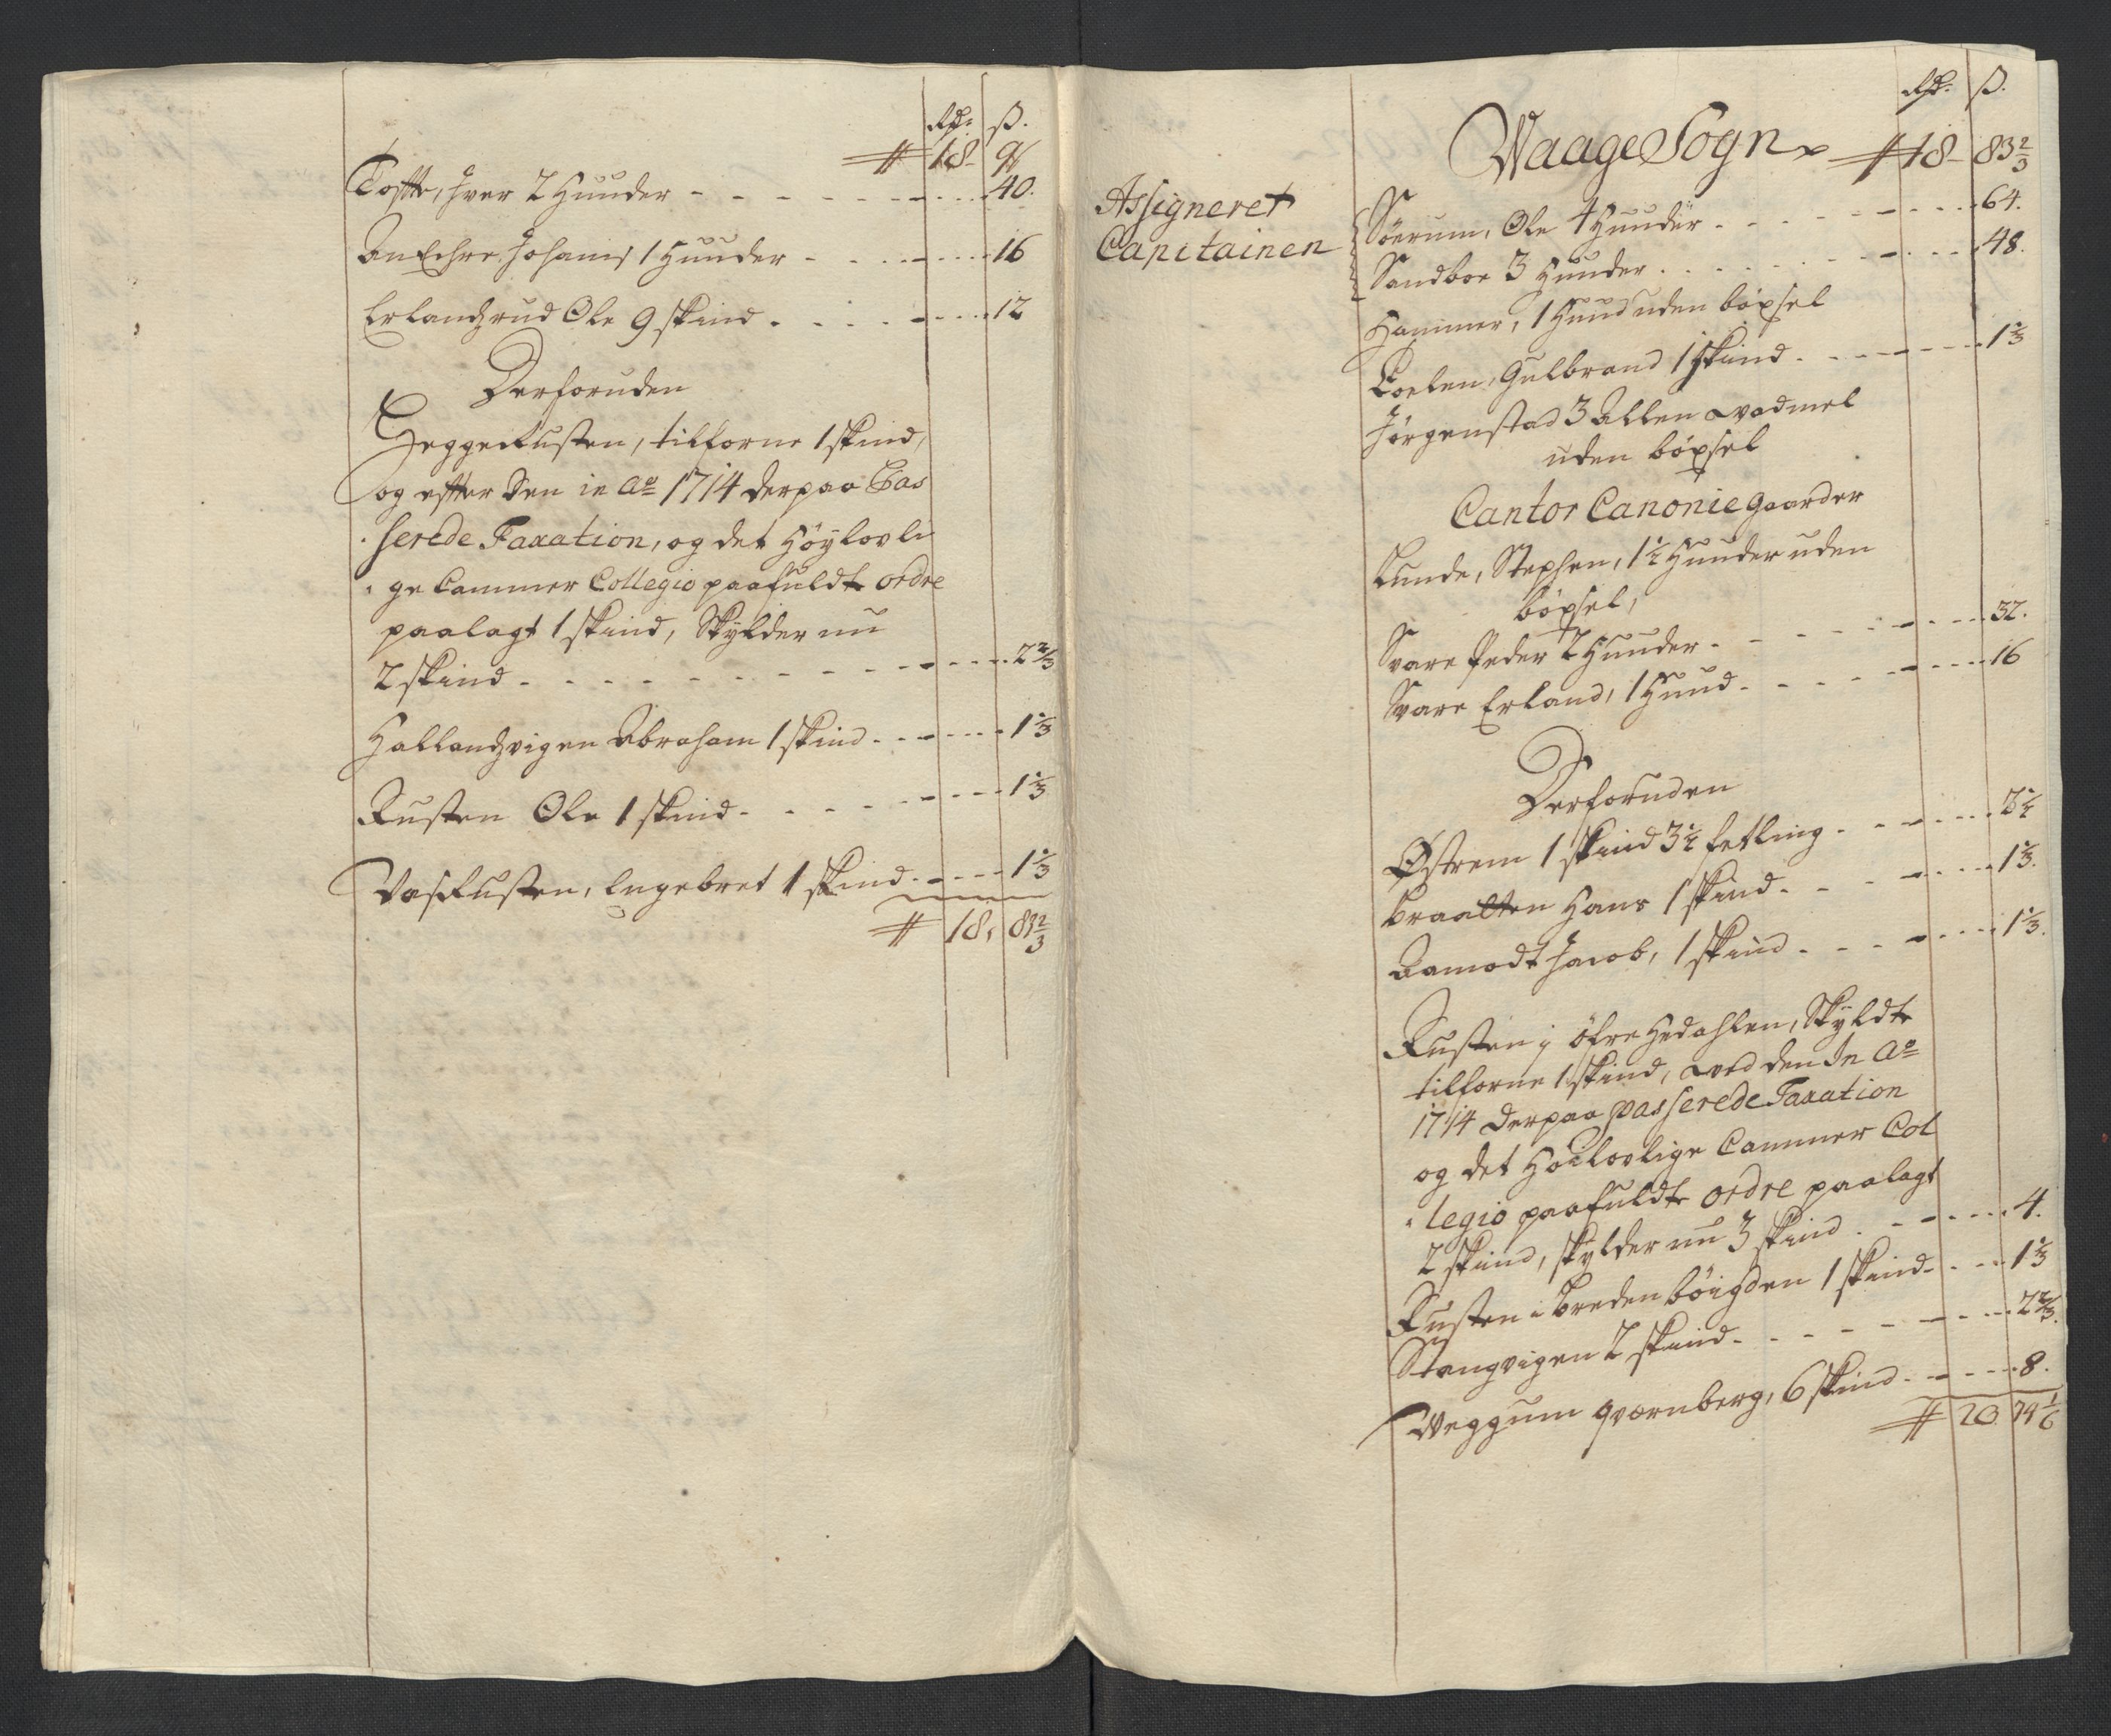 Rdr. ß.
# 18 - 96
Toffte, Iver 2 Hunder - - - - - - 40.
Bnechre Johanis 1 Hunder - - - - 16
Erlandzrud Ole 9 skind - - - - 12
Derforuden
Heggerusten, tilforne 1 skind,
og effter den in Ao 1714 derpaa Pas
serede Taxation, og det Höylovli
ge Cammer Collegio paafuldte ordre
paalagt 1 skind, Skylder nu
2 skind - - - - - - - - 2 2/3
Hallandzvigen Abraham 1 skind - - - - 1 1/3
Rusten Ole 1 skind - - - - - 1 1/3
Vasrusten, Engebret 1 skind - - - - 1 1/3
# 18, 83 2/3
Rdr. ß.
Waage Sogn # 18 - 83 2/3
Assigneret
Capitainen
Söerum, Ole 4 Hunder - - - - - 64.
Sandboe 3 Hunder - - - - - 48.
Hammer, 1 Hund uden böxsel
Loelen, Gulbrand 1 skind - - - - 1 1/3
Jörgenstad 3 Allen wadmel
uden böxsel
Cantor Canonie gaarder
Lunde, Stephen, 1 1/2 Hunder uden
böxsel,
Svare Peder 2 Hunder - - - - - 32.
Svare Erland, 1 Hund - - - - - 16
Derforuden
Østrem 1 skind 3 1/2 fetling - - - - 2 1/2
Braatten Hans 1 skind - - - - 1 1/3.
Aamodt Jacob, 1 skind - - - - 1 1/3.
Rusten i öfre Hedahlen, Skyldte
tilforne 1 skind, wed den In Ao
1714 derpaa passerede Taxation
og det Höilovlige Cammer Col
legio paafuldte ordre paalagt
2 skind, skylder nu 3 skind - - - - 4.
Rusten i breden böigden 1 skind - - - 1 1/3
Stangvigen 2 skind - - - - - 2 2/3.
Weggum qvornberg, 6 skind - - - - 8.
# 20. 74 1/6